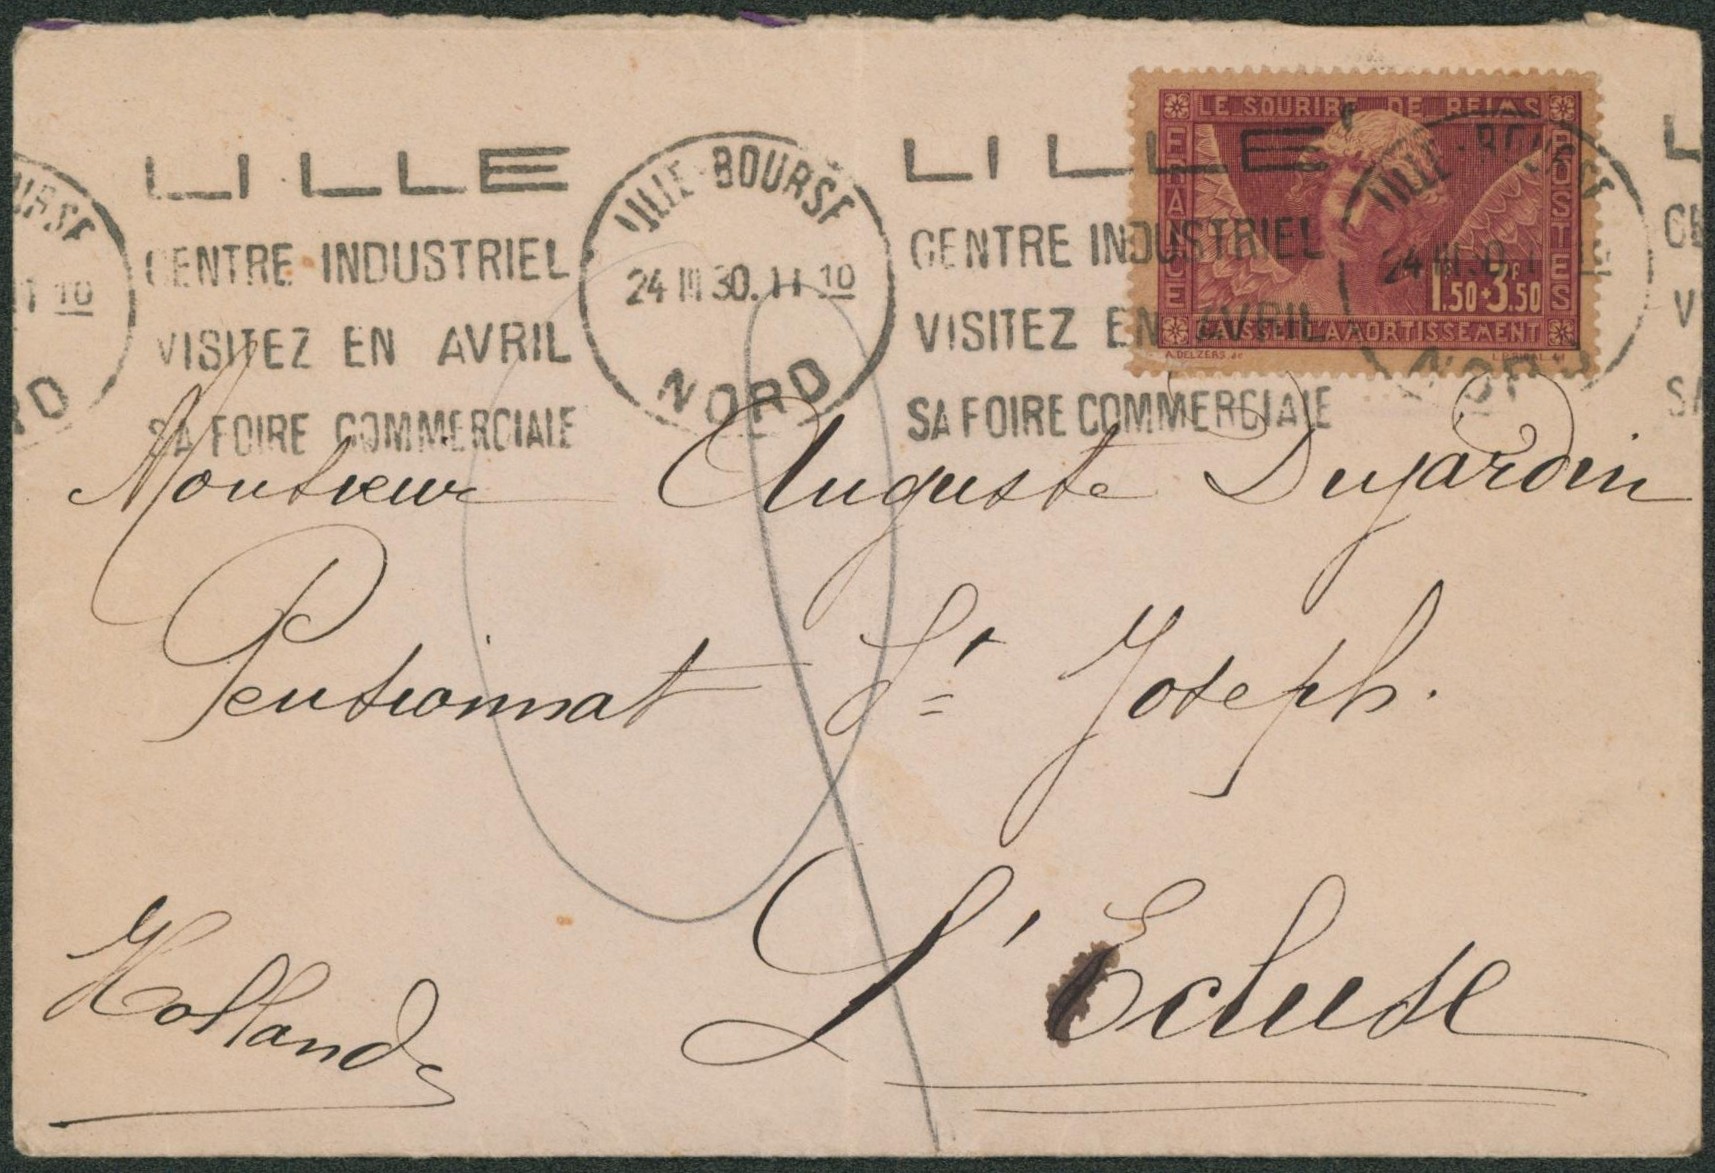 LILLE
CENTRE INDUSTRIEL
VISITEZ EN AVRIL
SA FOIRE COMMERCIALE
LILLE-BOURSE
24 III 30. 11 10
NORD
LILLE
CENTRE INDUSTRIEL
VISITEZ EN AVRIL
SA FOIRE COMMERCIALE
LE SOURIRE DE REIMS
FRANCE
POSTES
1F.50+3F.50
CAISSE D'AMORTISSEMENT
A.DELZERS dc
LILLE-BOURSE
24 III 30
NORD
Monsieur Auguste Dujardin
Pensionnat St Joseph.
L'Ecluse
Hollande